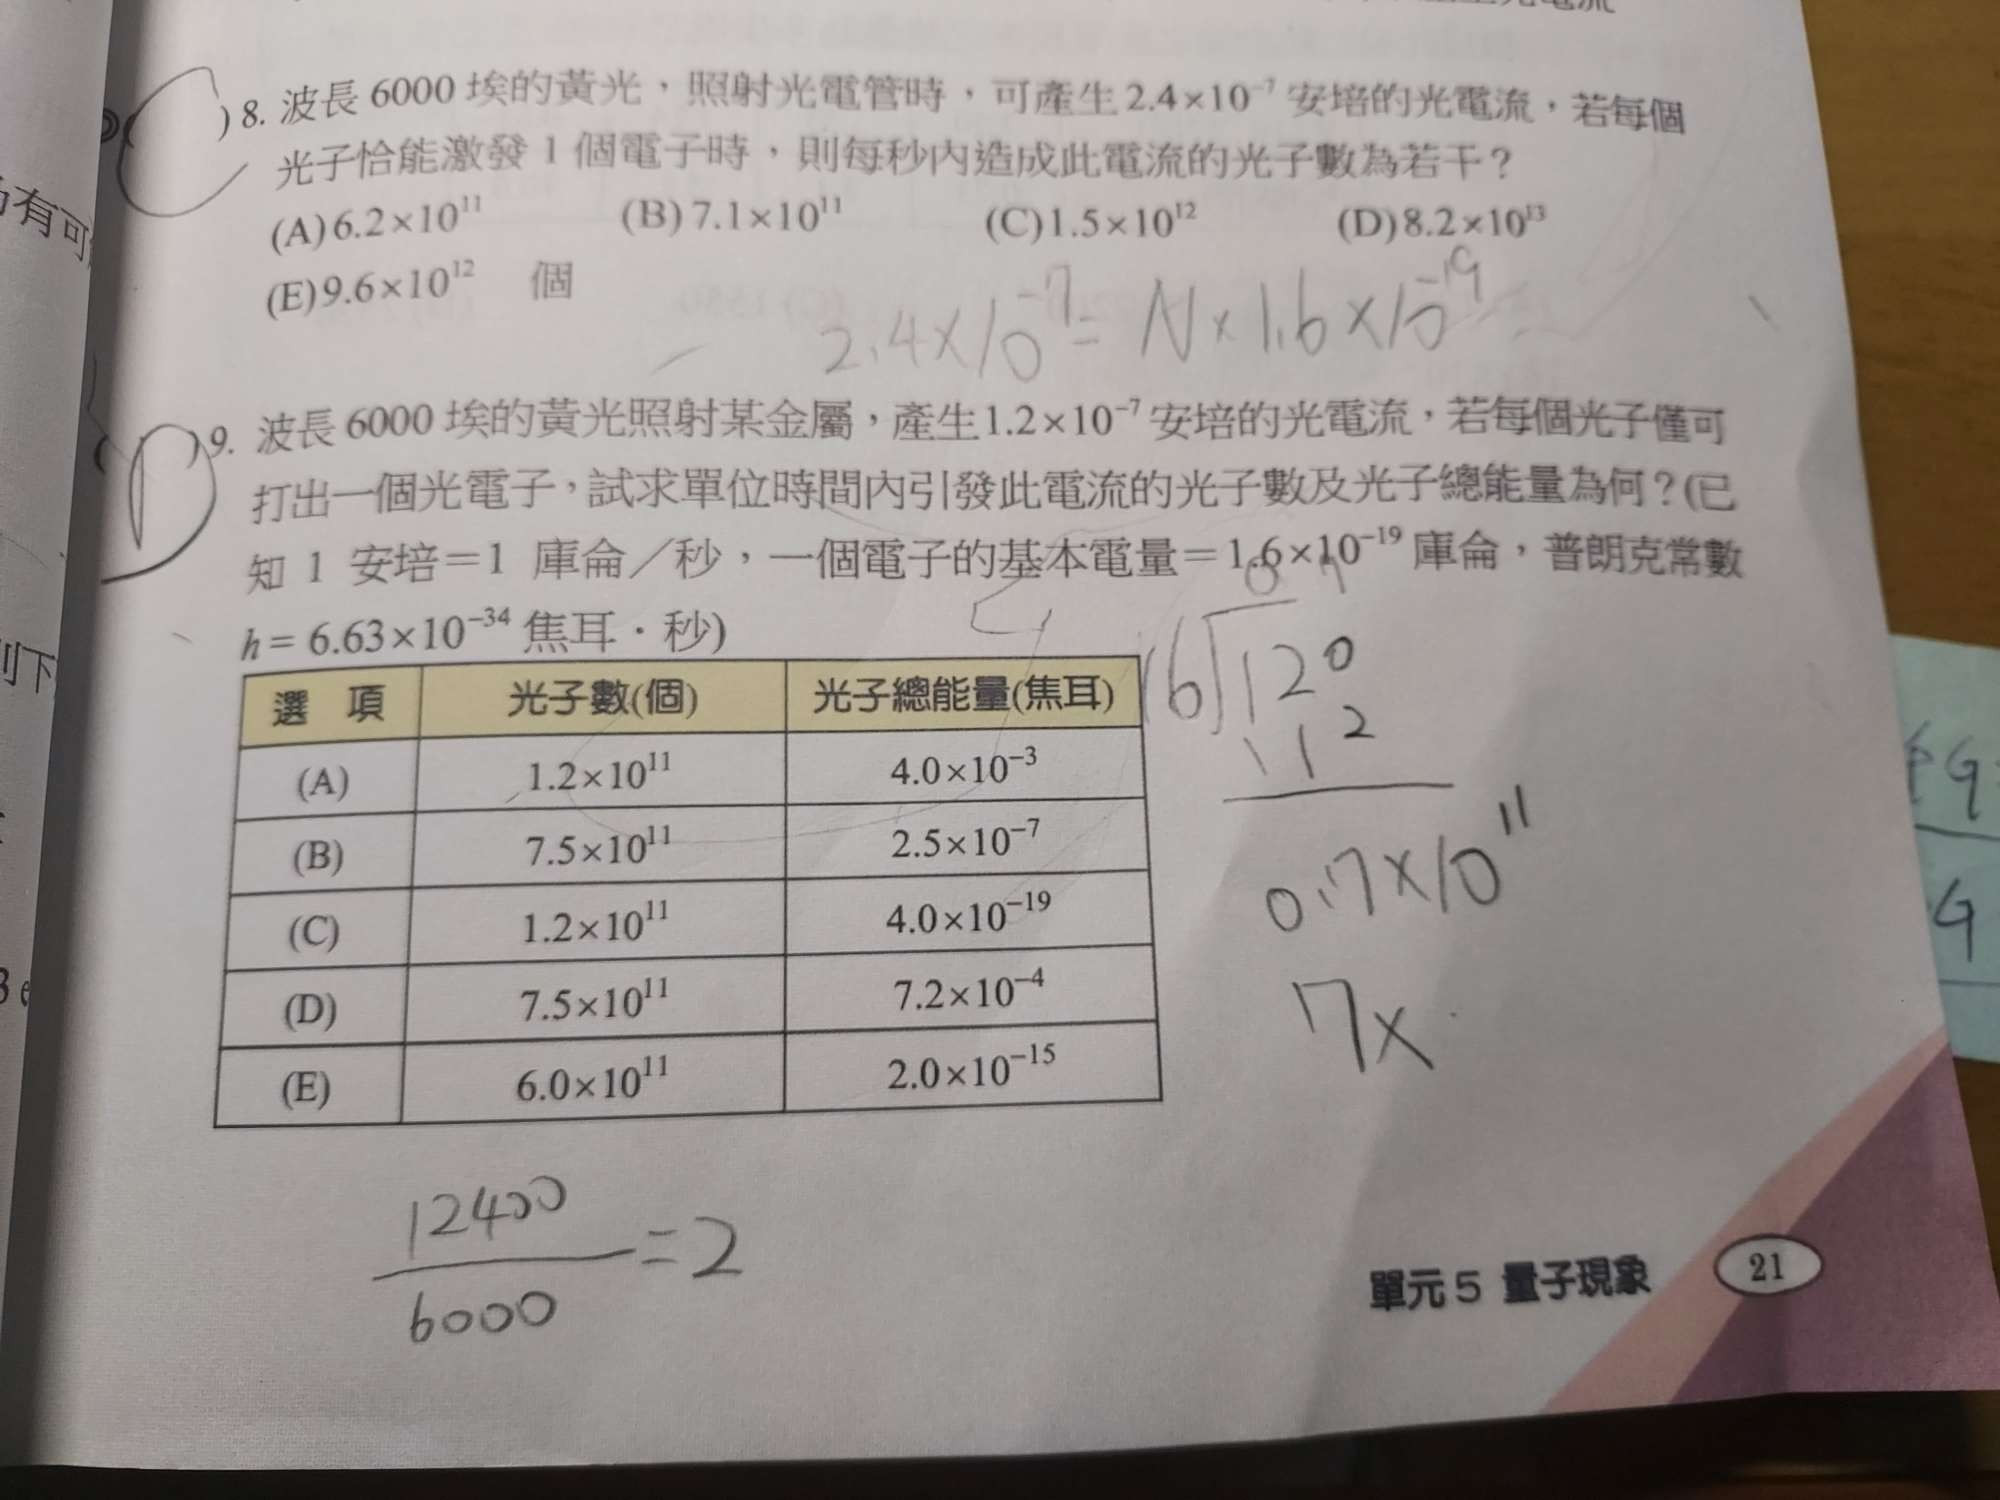 )8. 波長 6000 埃的黃光，照射光電管時，可產生 2.4×10⁻⁷ 安培的光電流，若每個
光子恰能激發 1 個電子時，則每秒內造成此電流的光子數為若干？
(A) 6.2×10¹¹ (B) 7.1×10¹¹ (C) 1.5×10¹² (D) 8.2×10¹³
(E) 9.6×10¹² 個
2.4×10⁻⁷ = N×1.6×10⁻¹⁹
( )9. 波長 6000 埃的黃光照射某金屬，產生 1.2×10⁻⁷ 安培的光電流，若每個光子僅可
打出一個光電子，試求單位時間內引發此電流的光子數及光子總能量為何？(已
知 1 安培＝1 庫侖／秒，一個電子的基本電量＝1.6×10⁻¹⁹ 庫侖，普朗克常數
h = 6.63×10⁻³⁴ 焦耳．秒)
選 項 光子數(個) 光子總能量(焦耳)
(A) 1.2×10¹¹ 4.0×10⁻³
(B) 7.5×10¹¹ 2.5×10⁻⁷
(C) 1.2×10¹¹ 4.0×10⁻¹⁹
(D) 7.5×10¹¹ 7.2×10⁻⁴
(E) 6.0×10¹¹ 2.0×10⁻¹⁵
0 7
16 120
112
0.7×10¹¹
7×
12400
=2
6000
單元 5 量子現象 21